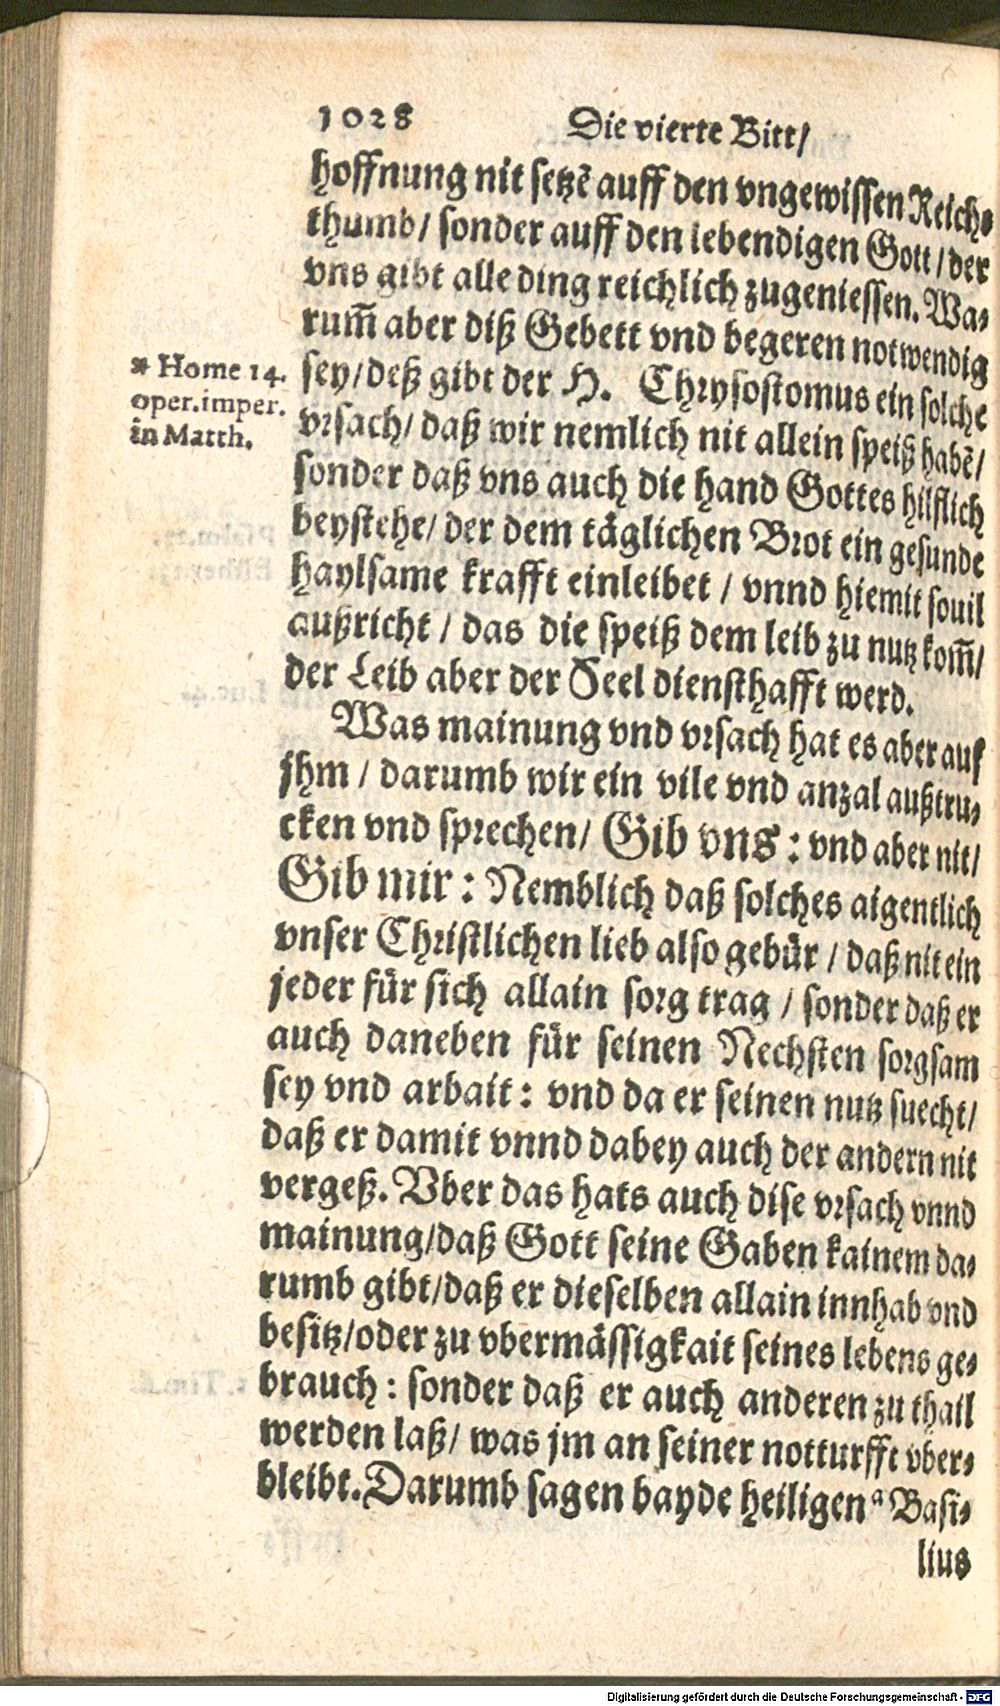 1028 Die vierte Bitt/
hoffnung nit setzẽ auff den vngewissen Reichs-
thumb/ sonder auff den lebendigen Gott/der
vns gibt alle ding reichlich zugeniessen. Wa-
rum̃ aber diß Gebett vnd begeren notwendig
* Home 14.
oper.imper.
in Matth.
sey/deß gibt der H. Chrysostomus ein solche
vrsach/ daß wir nemlich nit allein speiß habẽ/
sonder daß vns auch die hand Gottes hilflich
beystehe/ der dem täglichen Brot ein gesunde
haylsame krafft einleibet / vnnd hiemit souil
außricht / das die speiß dem leib zu nutz kom̃/
der Leib aber der Seel diensthafft werd.
Was mainung vnd vrsach hat es aber auf
jhm / darumb wir ein vile vnd anzal außtru-
cken vnd sprechen/ Gib vns: vnd aber nit/
Gib mir: Nemblich daß solches aigentlich
vnser Christlichen lieb also gebür / daß nit ein
jeder für sich allain sorg trag / sonder daß er
auch daneben für seinen Nechsten sorgsam
sey vnd arbait: vnd da er seinen nutz suecht/
daß er damit vnnd dabey auch der andern nit
vergeß. Vber das hats auch dise vrsach vnnd
mainung/daß Gott seine Gaben kainem da-
rumb gibt/daß er dieselben allain innhab vnd
besitz/oder zu vbermässigkait seines lebens ge-
brauch: sonder daß er auch anderen zu thail
werden laß/ was jm an seiner notturfft vber-
bleibt. Darumb sagen bayde heiligen ª Basi-
lius
Digitalisierung gefördert durch die Deutsche Forschungsgemeinschaft - DFG